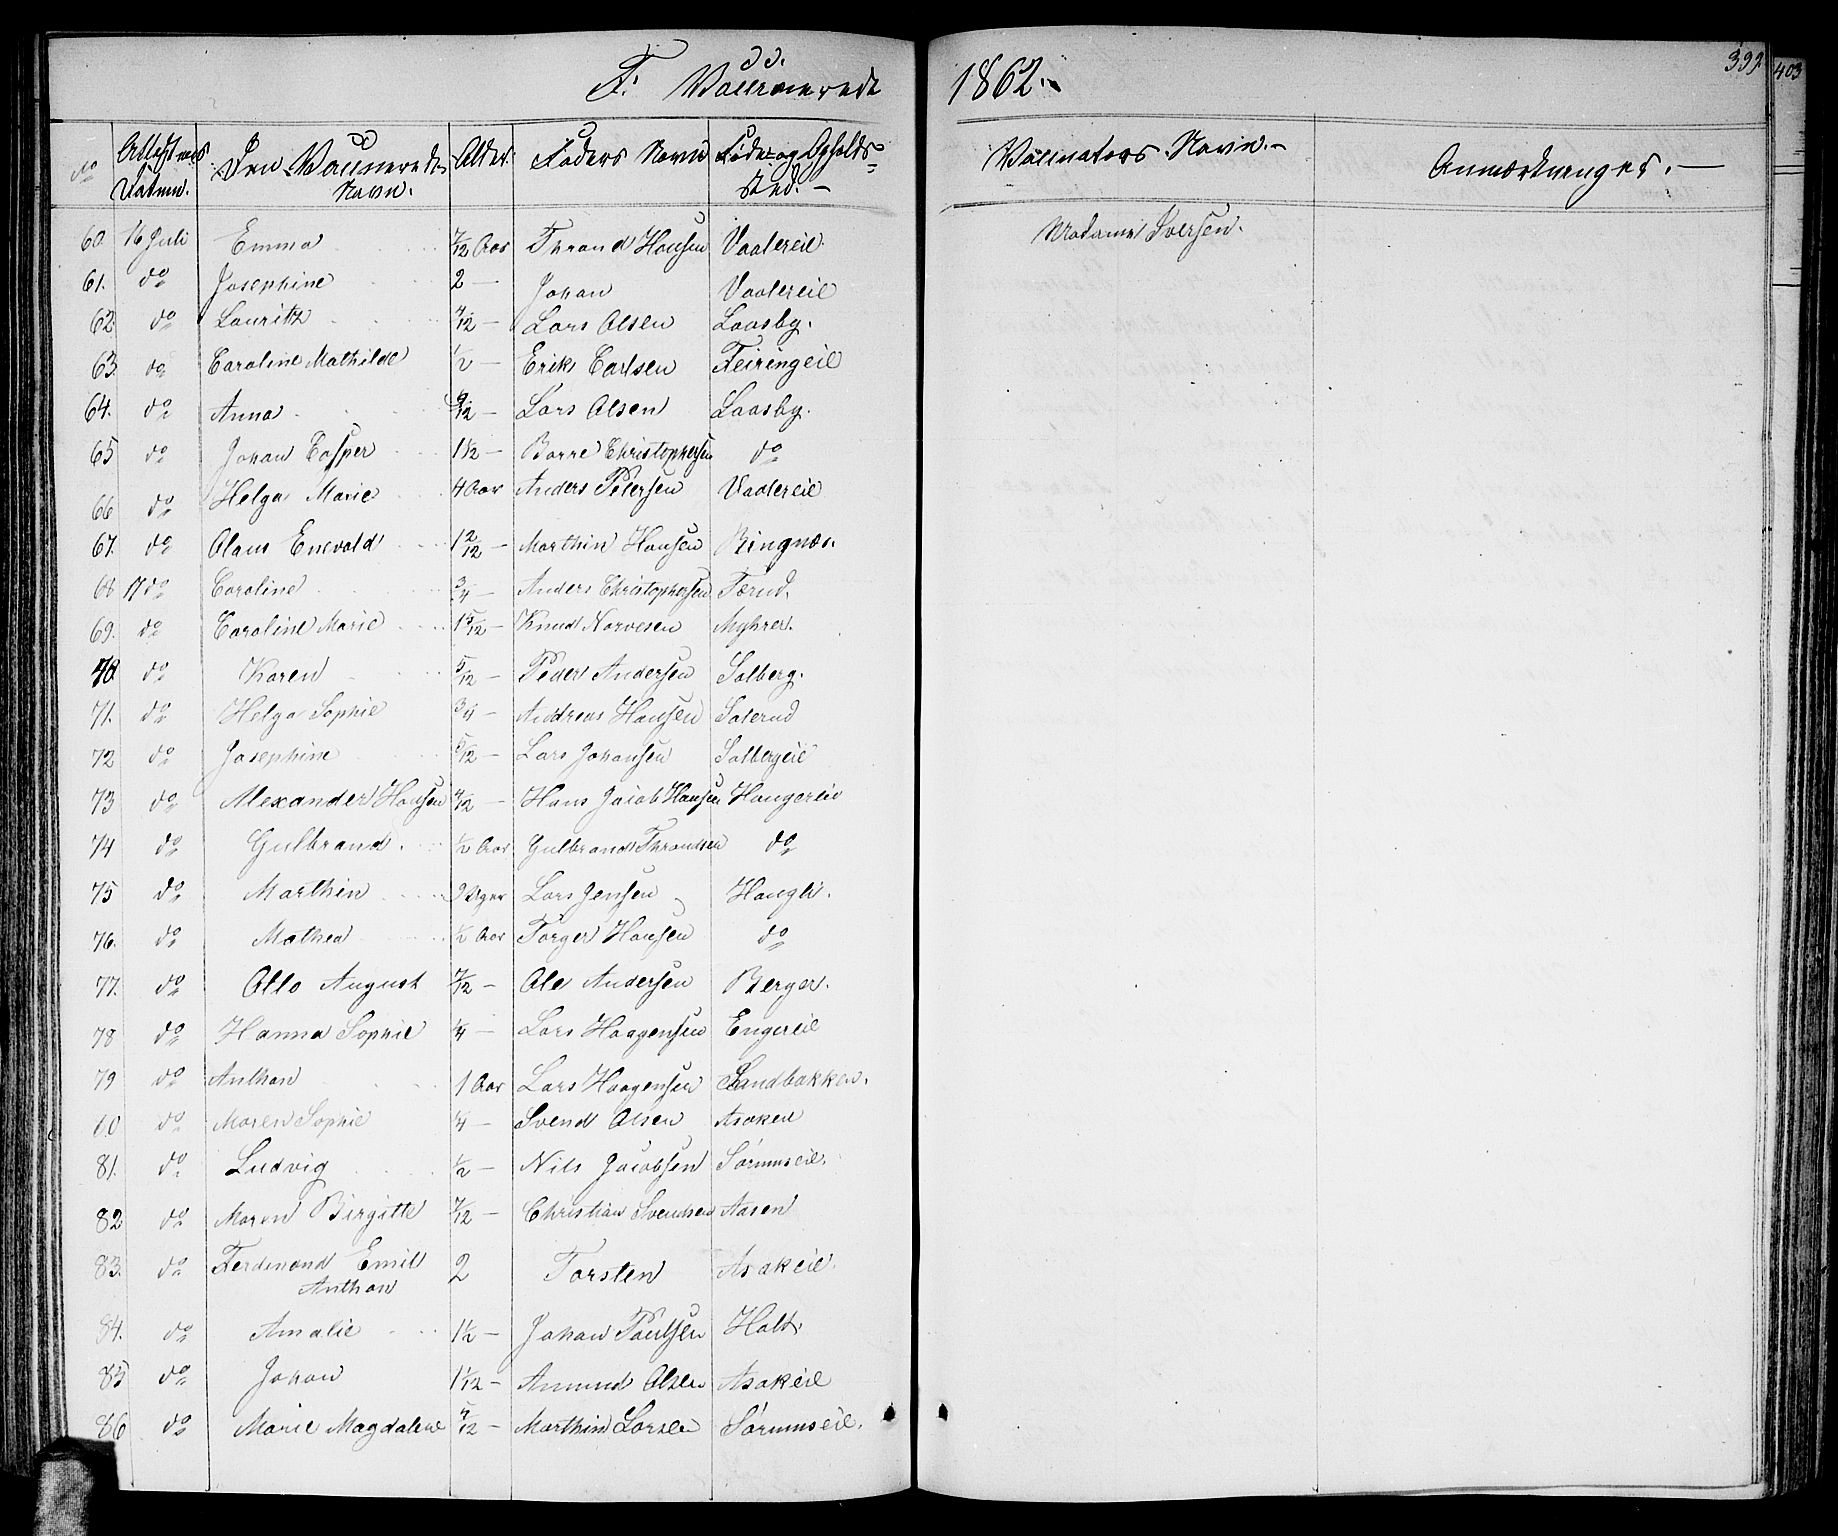 F. Vaccinerede 1862.
392
403
No Attestens Datum. Den Vaccineredes Navn. Alder. Faders Navn Føde- og Opholds- Sted. Vaccinators Navn. Anmærkninger.
60 16 Juli Emma 7/12 Aar Thrand Hansen Vaalereie Madame Iversen.
61. do Josephine 2 — Johan Vaalereie
62 do Lauritz 4/12 — Lars Olsen Laasby.
63 do Caroline Mathilde 1/2 — Erik Carlsen Feiringeie
64. do Anna 9/12 — Lars Olsen Laasby.
65 do Johan Casper 1 1/2 — Borre Christophersen do
66 do Helga Marie 4 Aar Anders Petersen Vaalereie
67. do Olaus Enevold 1 2/12 — Marthin Hansen Bingnæs.
68 17 do Caroline 3/4 — Anders Christophersen Tærud.
69. do Caroline Marie 1 5/12 — Knud Narvesen Myhrer.
70 do Karen 5/12 — Peder Andersen Solberg.
71. do Helga Sophie 3/4 — Andreas Hansen Solerud
72 do Josephine 5/12 — Lars Johansen Solbergeie
73 do Alexander Hansen 4/12 — Hans Jacob Hansen Haugereie
74 do Gulbrand 1/2 Aar Gulbrand Thrandsen do
75 do Marthin 9 Uger Lars Jensen Haugli.
76. do Mathea 1/2 Aar Torger Hansen do
77. do Otto August 7/12 — Ole Andersen Berger.
78 do Hanna Sophie 1/4 — Lars Haagensen Engereie
79 do Anthon 1 Aar Lars Haagensen Sandbakken.
80 do Maren Sophie 1/4 — Svend Olsen Asaken
81. do Ludvig 1/2 — Nils Jacobsen Sørumseie.
82 do Maren Birgitte 7/12 — Christian Svendsen Aasen
83. do Ferdinand Emil 2 Torsten Asakeie.
Anthon
84. do Amalie 1 1/2 — Johan Paulsen Holt.
85 do Johan 1 1/12 — Amund Olsen Asakeie
86 do Marie Magdalene 5/12 — Marthin Larsen Sørumseie.